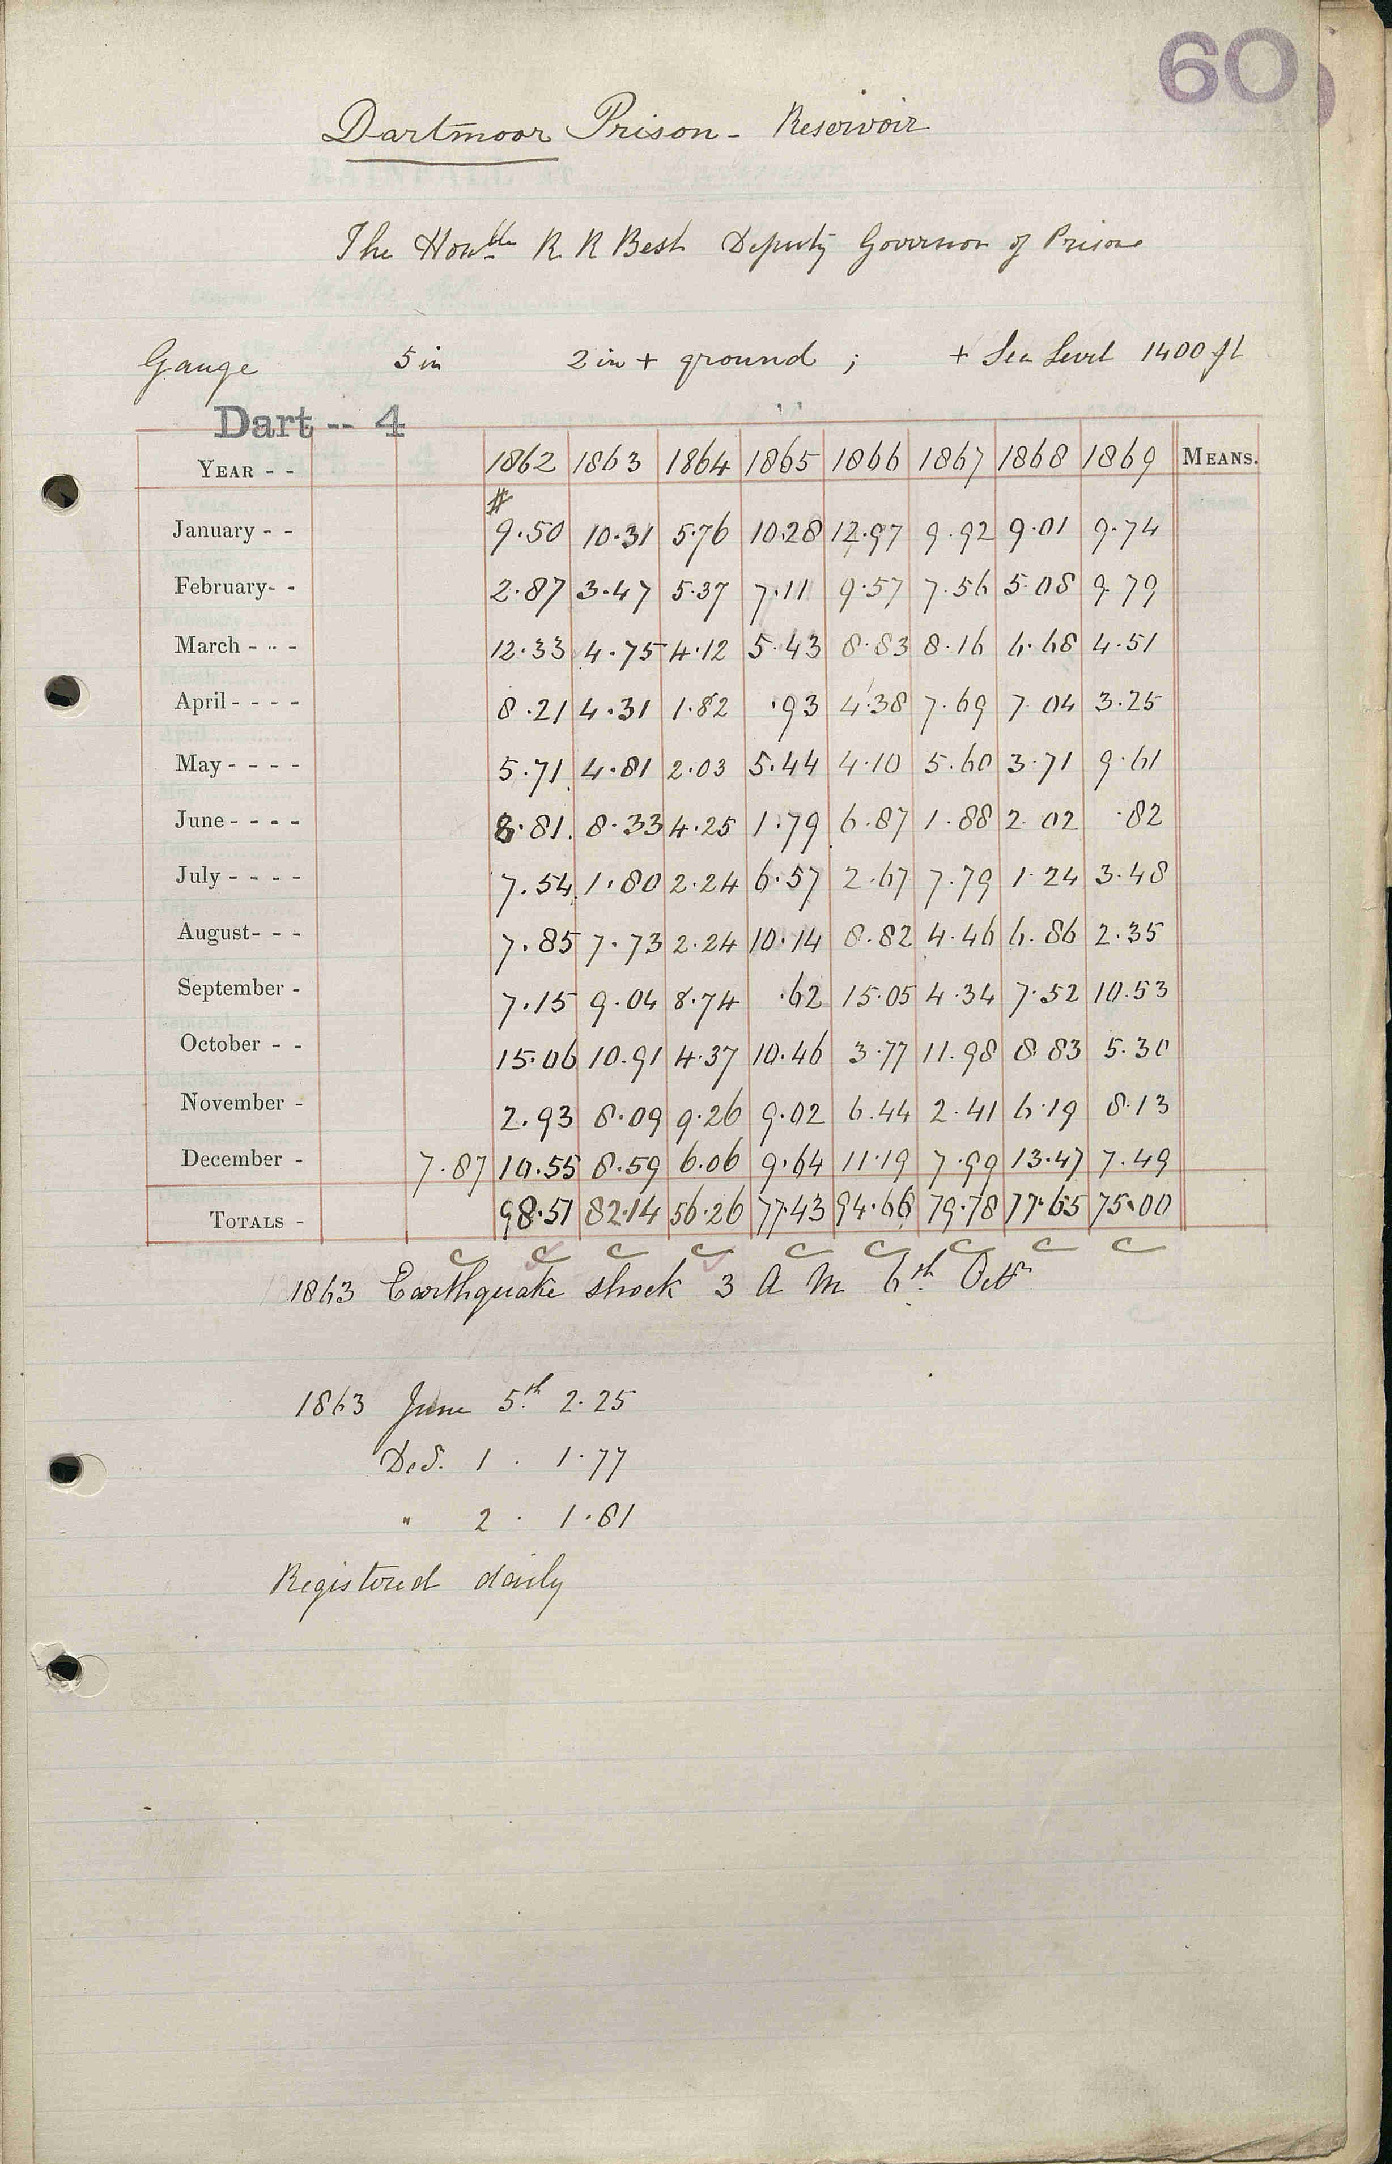 60
Dartmoor Prison - Reservoir
The Honble R R Best Deputy Governor of Prison
Gauge 5 in 2 in + ground ; + Sea Level 1400 ft
Dart -- 4
YEAR - - 1862 1863 1864 1865 1866 1867 1868 1869 MEANS.
#
January - - 9.50 10.31 5.76 10.28 12.97 9.92 9.01 9.74
February- - 2.87 3.47 5.37 7.11 9.57 7.56 5.08 9.79
March - - - 12.33 4.75 4.12 5.43 8.83 8.16 6.68 4.51
April - - - - 8.21 4.31 1.82 .93 4.38 7.69 7.04 3.25
May - - - - 5.71 4.81 2.03 5.44 4.10 5.60 3.71 9.61
June - - - - 8.81 8.33 4.25 1.79 6.87 1.88 2.02 .82
July - - - - 7.54 1.80 2.24 6.57 2.67 7.79 1.24 3.48
August- - - 7.85 7.73 2.24 10.14 8.82 4.46 6.86 2.35
September - 7.15 9.04 8.74 .62 15.05 4.34 7.52 10.53
October - - 15.06 10.91 4.37 10.46 3.77 11.98 8.83 5.30
November - 2.93 8.09 9.26 9.02 6.44 2.41 6.19 8.13
December - 7.87 10.55 8.59 6.06 9.64 11.19 7.99 13.47 7.49
TOTALS - 98.51 82.14 56.26 77.43 94.66 79.78 77.65 75.00
c c c c c c c c c
1863 Earthquake shock 3 A M 6th Octr
1863 June 5th 2.25
Dec. 1 . 1.77
" 2 . 1.81
Registered daily